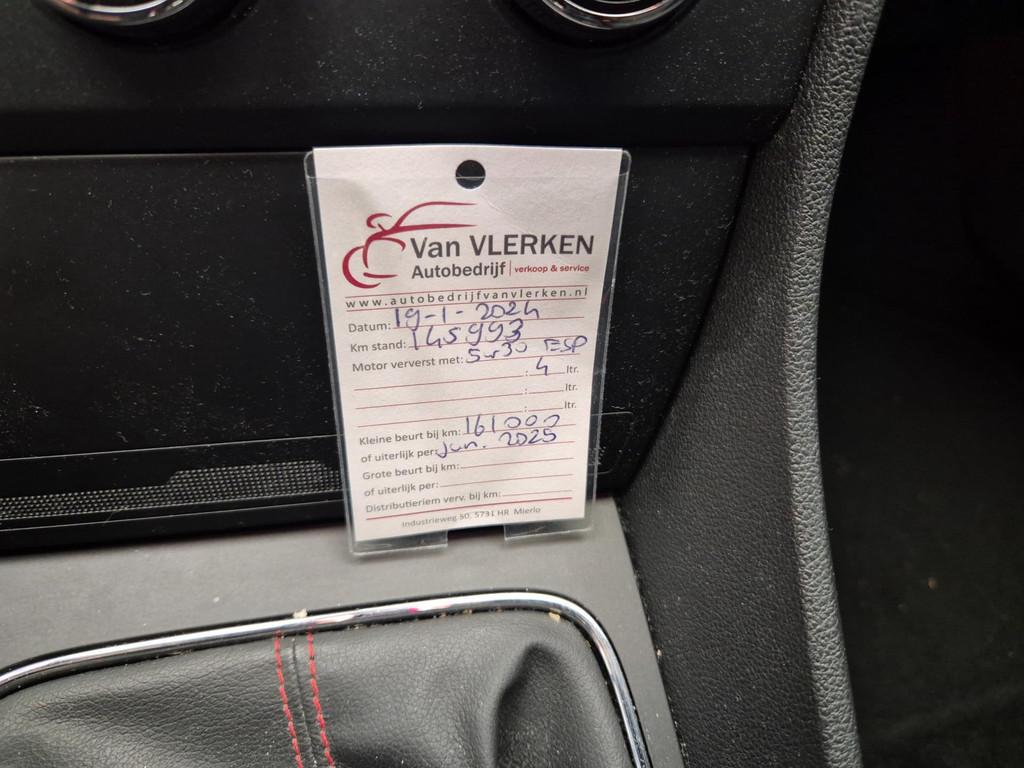 Van VLERKEN
Autobedrijf | verkoop & service
www.autobedrijfvanvlerken.nl
Datum: 19-1-2024
Km stand: 145993
Motor ververst met: 5w30 ESP
: 4 ltr.
: ltr.
: ltr.
Kleine beurt bij km: 161000
of uiterlijk per: jan. 2025
Grote beurt bij km:
of uiterlijk per:
Distributieriem verv. bij km:
Industrieweg 50, 5731 HR Mierlo